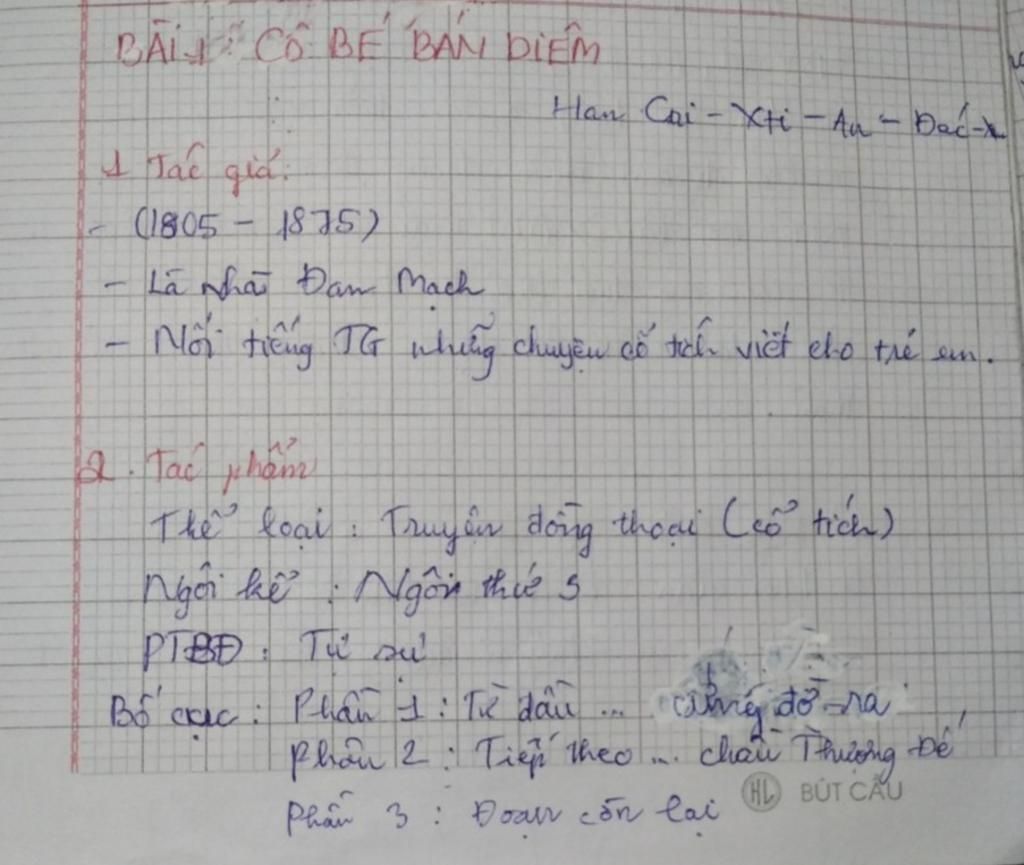 BÀI 1: CÔ BÉ BÁN DIÊM
Han Cri - Xti - An - Đéc-x
1 Tác giả:
- (1805 - 1875)
- Là nhà Đan Mạch
- Nổi tiếng TG những chuyện cổ tích viết cho trẻ em.
2. Tác phẩm
Thể loại : Truyện đồng thoại (cổ tích)
Ngôi kể : Ngôi thứ 3
PTBĐ : Tự sự
Bố cục : Phần 1 : Từ đầu ... cứng đờ ra
Phần 2 : Tiếp theo ... chầu Thượng Đế
Phần 3 : Đoạn còn lại
HL BÚT CẦU